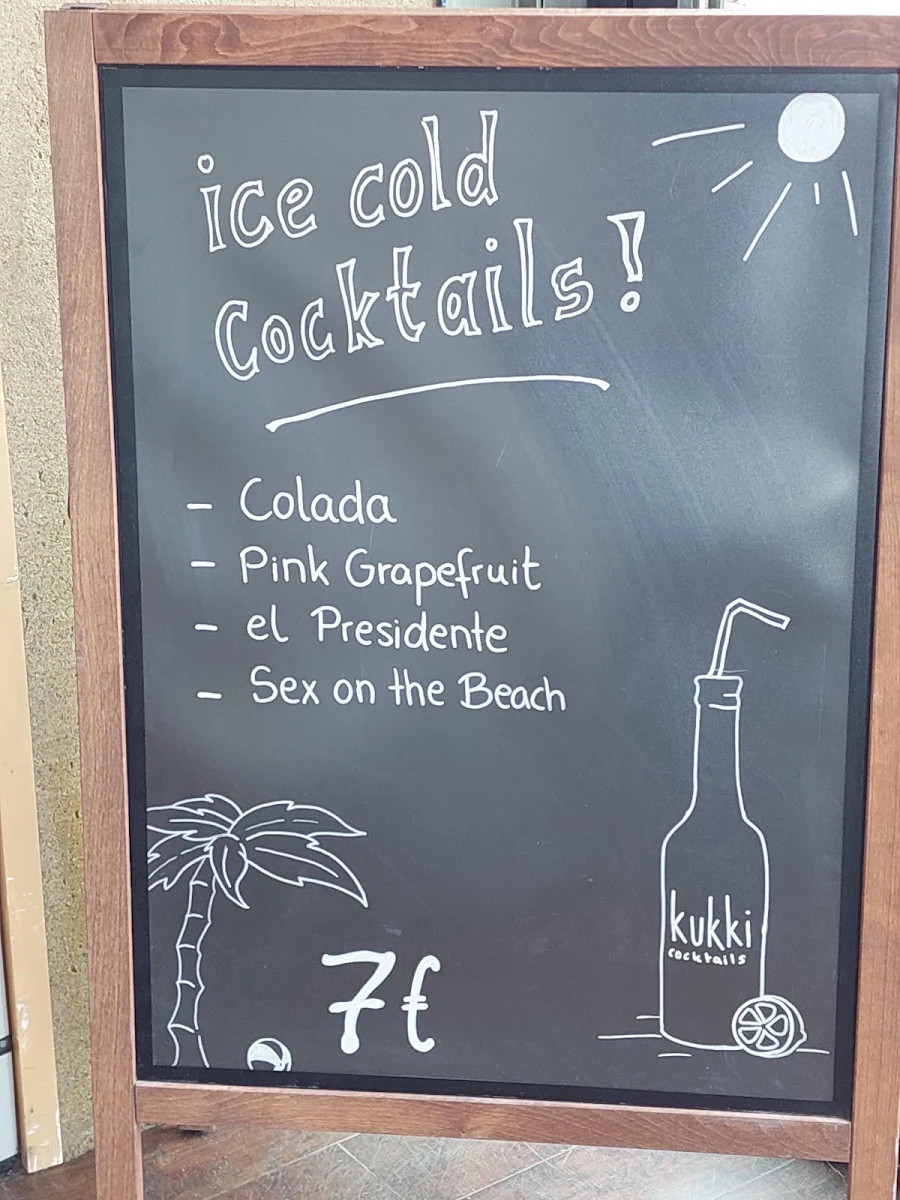 ice cold
Cocktails!
- Colada
- Pink Grapefruit
- el Presidente
- Sex on the Beach
kukki
cocktails
7€